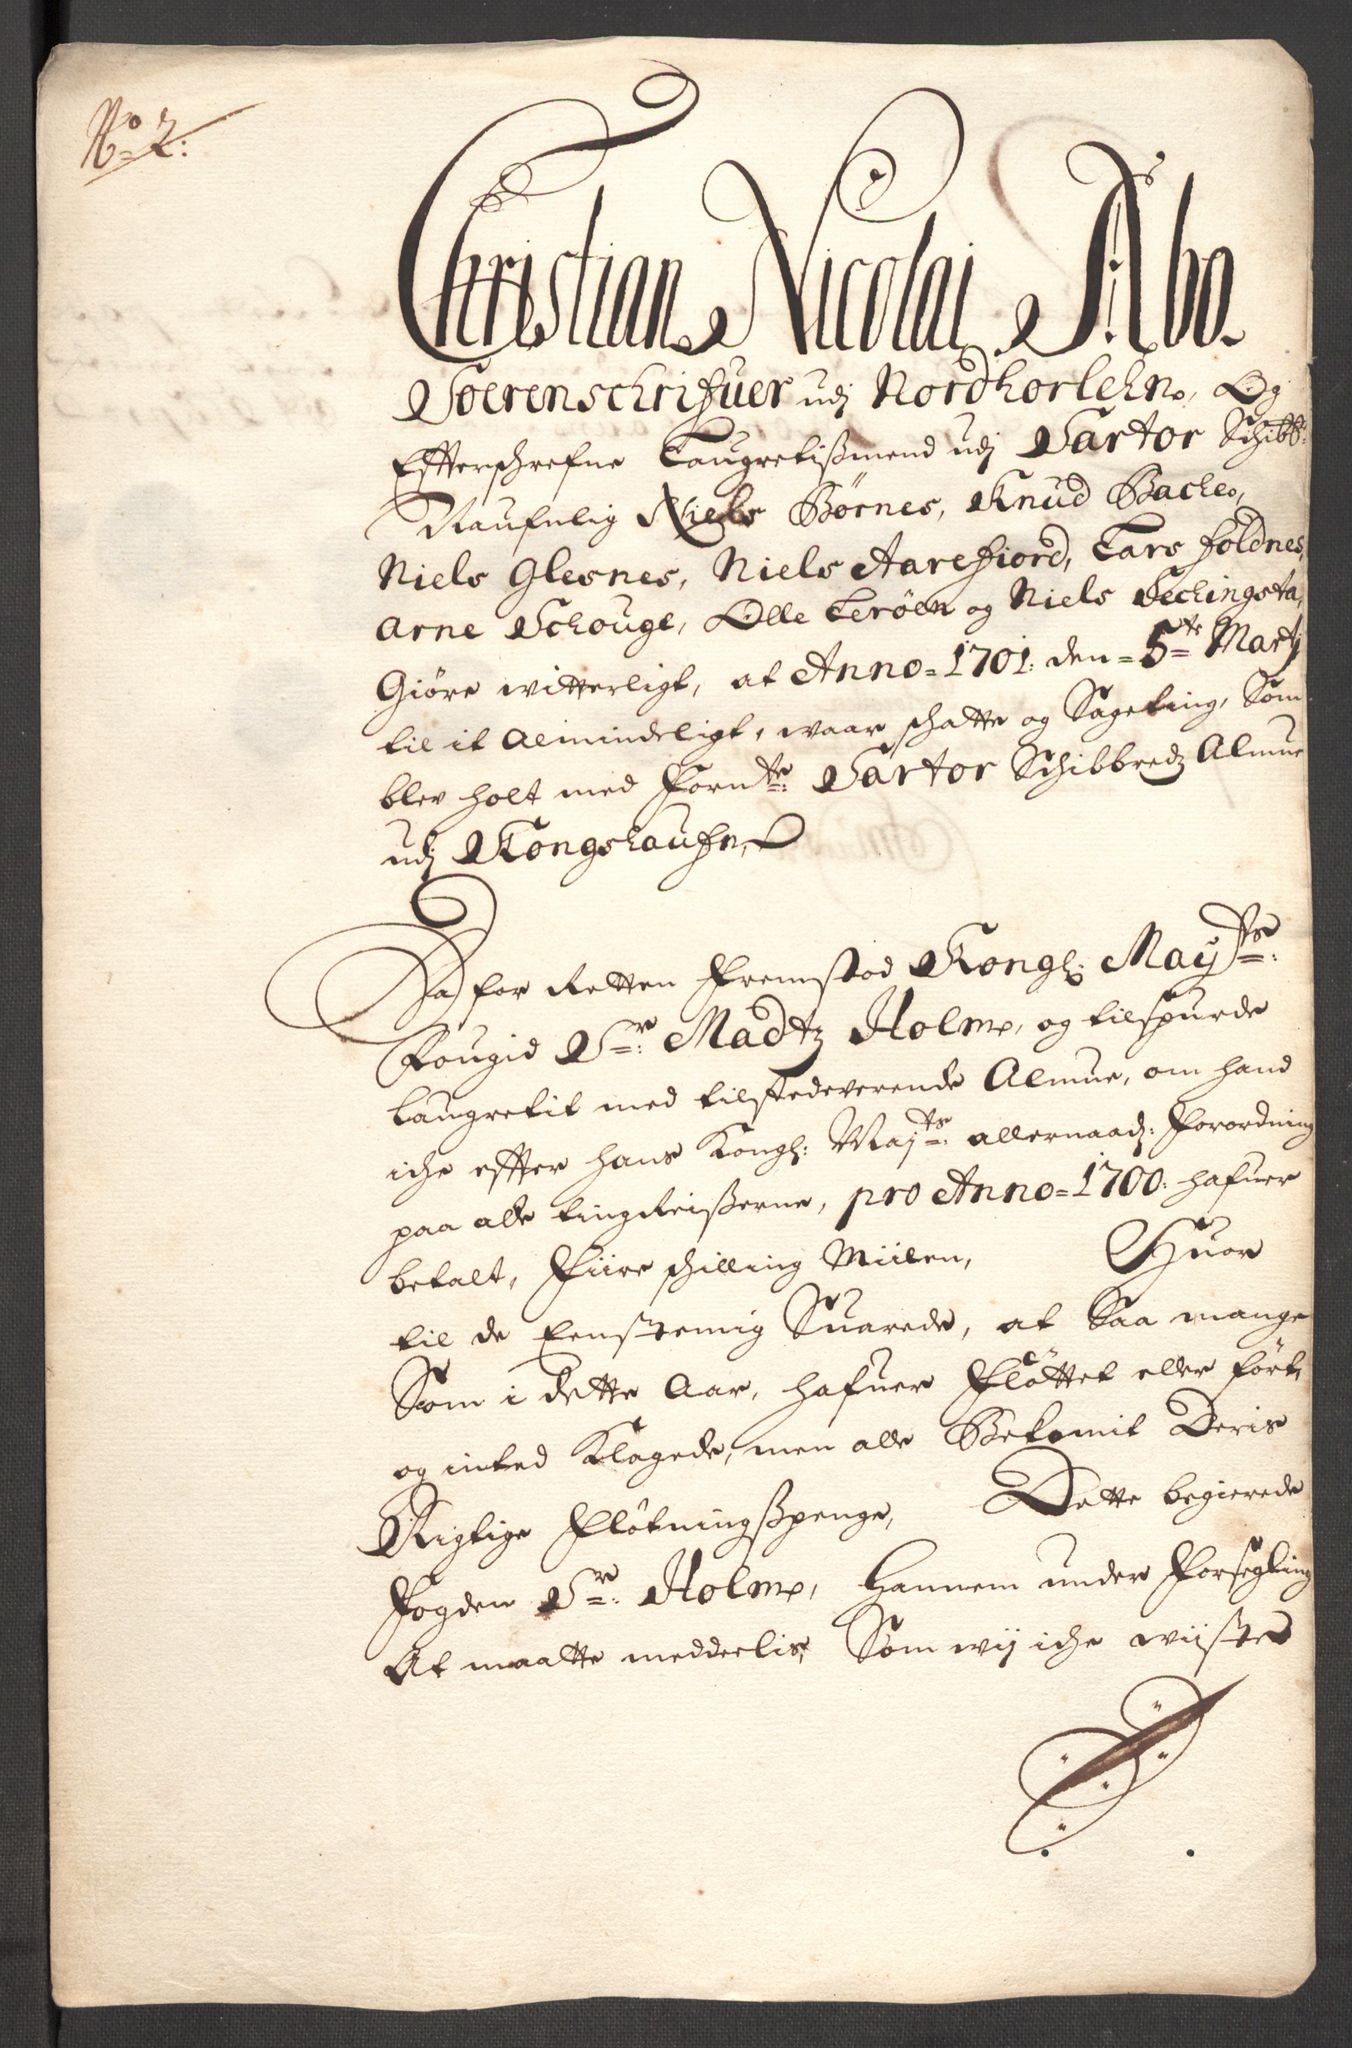 No 2:
Christian Nicolai Abo
Soerenschrifuer udj Nordhorlehn, Og
Effterschrefne Laugretißmend udj Sartor Schibb:
Naufnlig Niels Børnes, Knud Backe,
Niels Glesnes, Niels Aarefiord, Lars Foldnes,
Arne Schouge, Olle Lerøen og Niels Techingsta,
Giøre witterligt, at Anno=1701: den=5te Martj
til it Almindeligt, waar schatte og Sageting, Som
blev holt med Fornte: Sartor Schibbredz Almue
udj Kongshaufn,
Da for Retten Fremstod Kongl: Mayts:
Fougid Sr: Madtz Holm, og tilspurde
Laugretit med tilstedeverende Almue, om hand
iche effter hans Kongl: Majts: allernaad: Forordning
paa alle tingReißerne, pro Anno=1700: hafuer
betalt, Fiire schilling Miilen, Huor
til de Eenstemig Suarede, at Saa mange
Som i dette Aar, hafuer Fløttet eller ført,
og inted Klagede, men alle Bekomit Deris
Rigtige Fløtningßpenge, Dette begierede
Fogden Sr: Holm, Hannem under Forsegling
At maatte meddeelis, Som wij iche wiiste